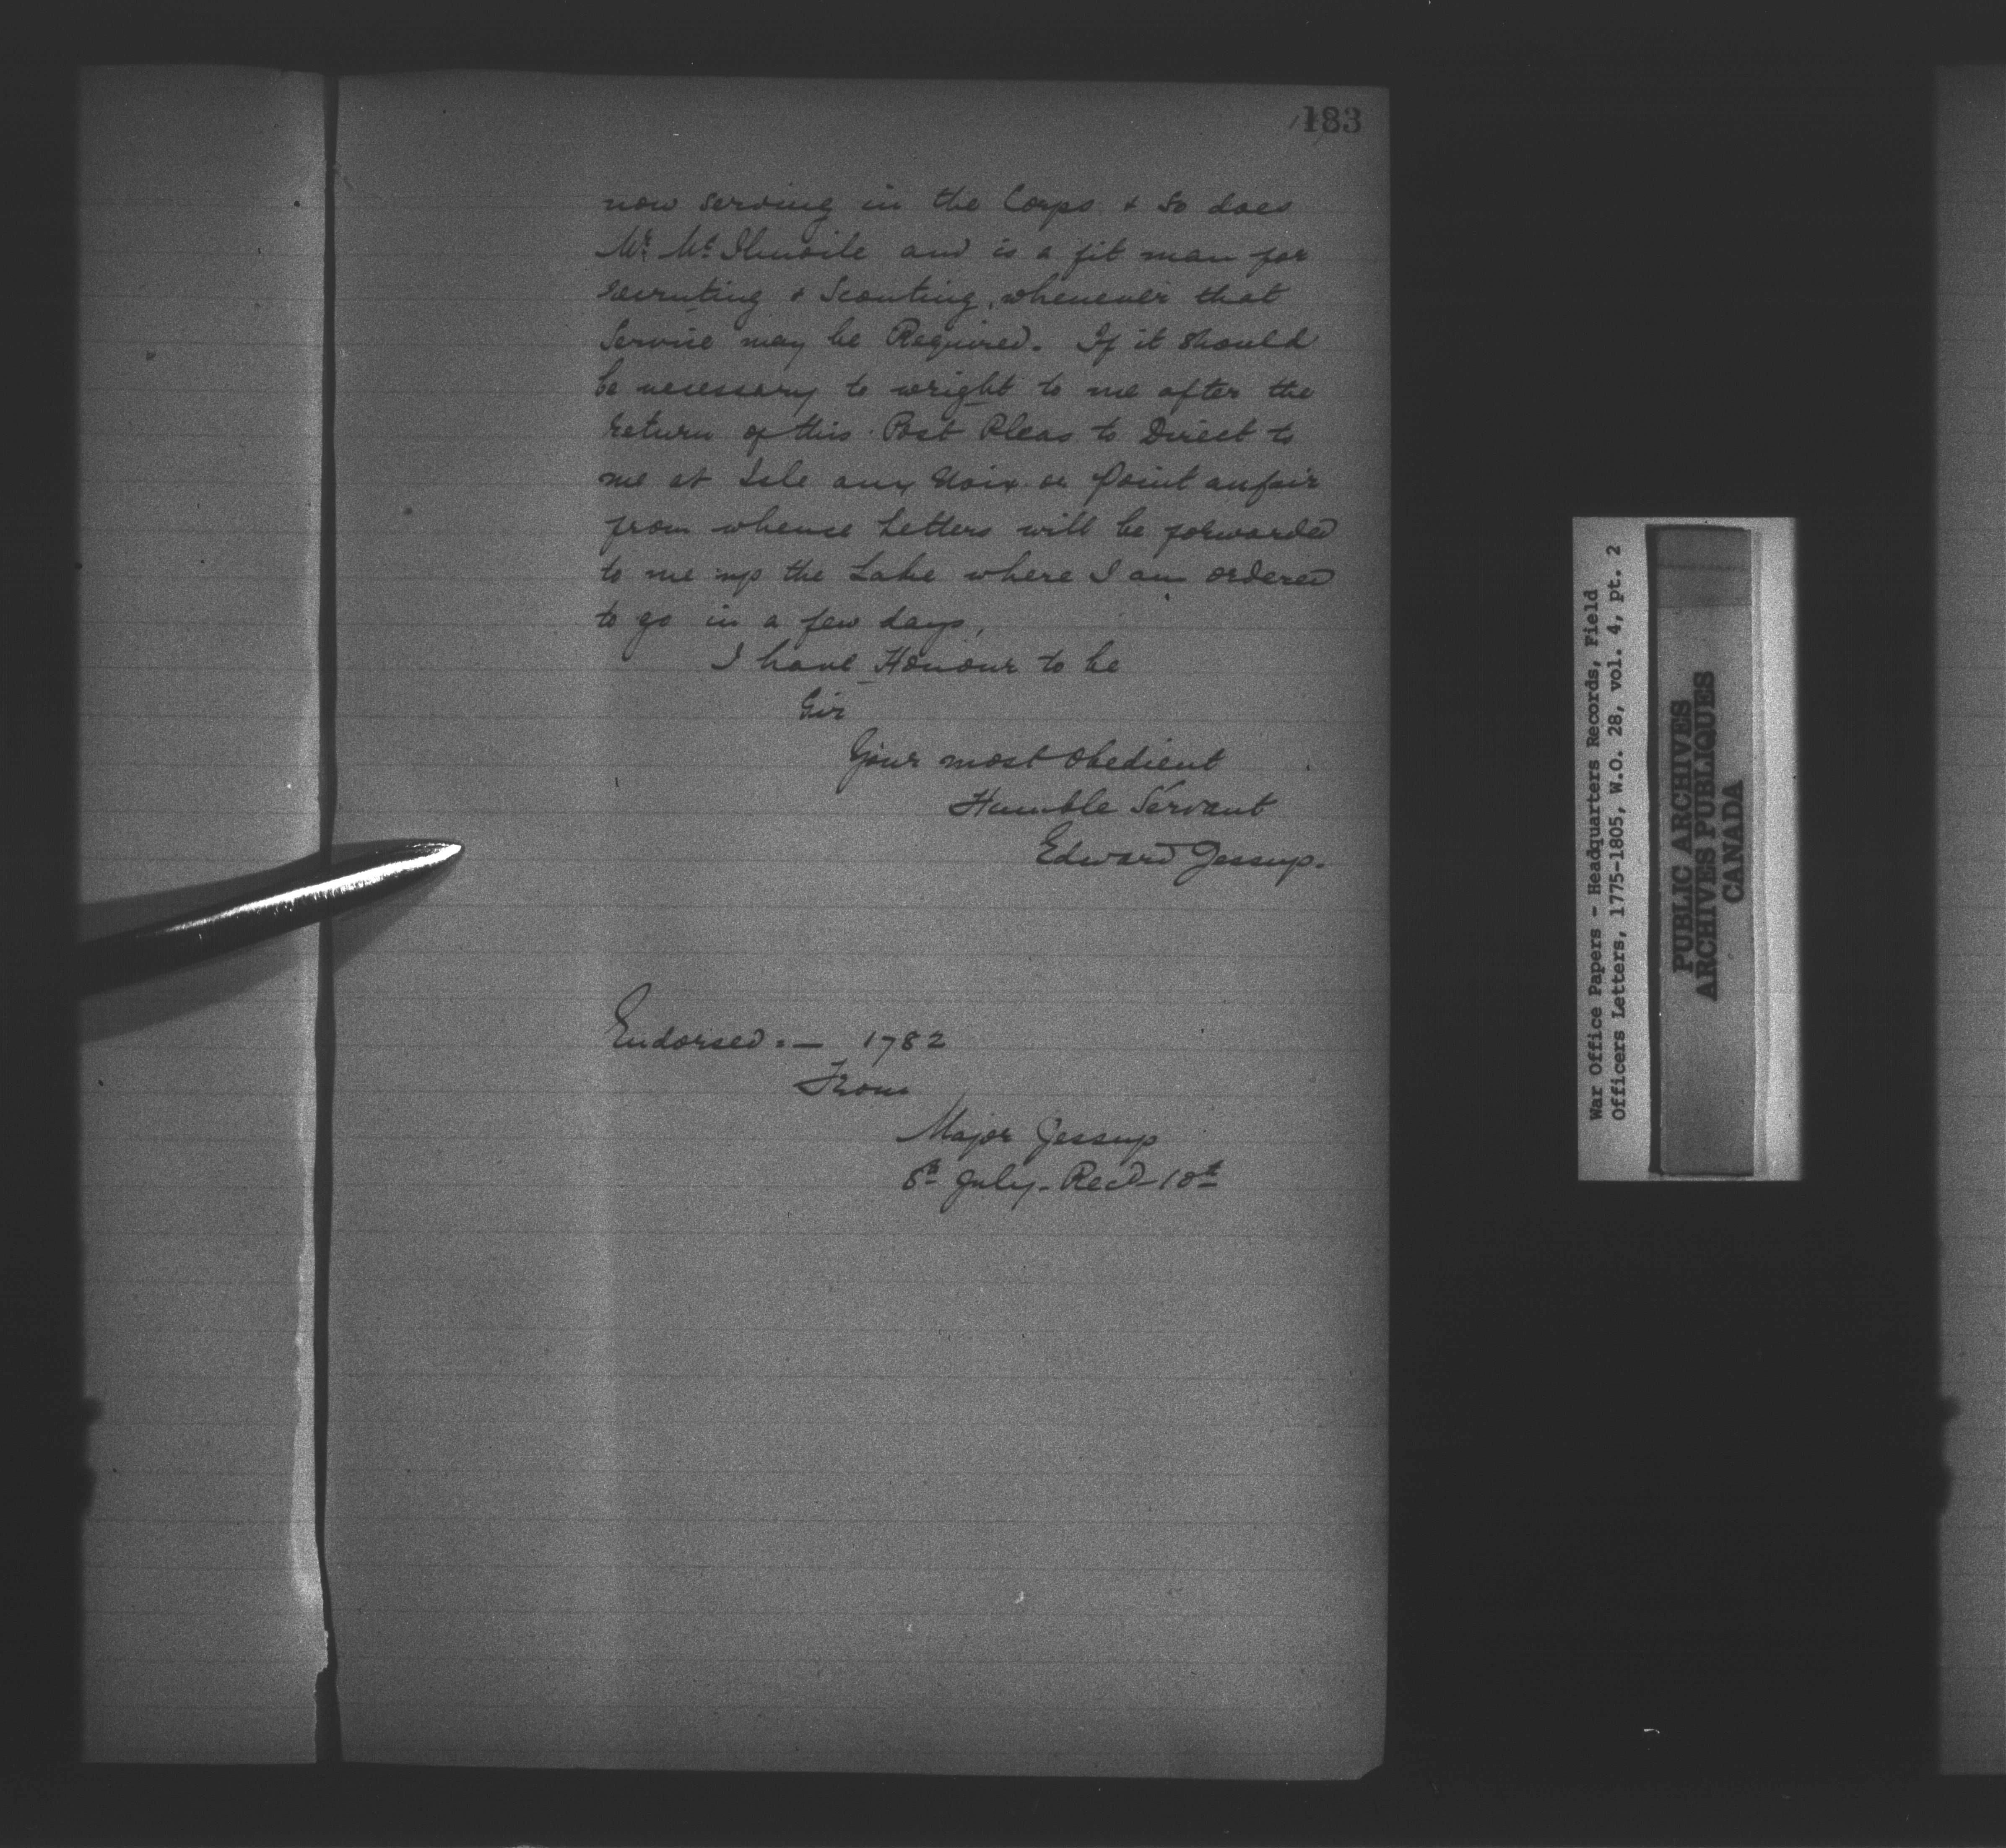 183
now serving in the Corps & so does
Mr. Mc Ilmoile and is a fit man for
recruting & Scouting, whenever that
Service may be Required. If it Should
be necessary to wright to me after the
return of this Post Pleas to Direct to
me at Isle aux Noix or Point aufair
from whence Letters will be forwarded
to me up the Lake where I am ordered
to go in a few days,
I have Honour to be
Sir
Your most Obedient
Humble Servant
Edward Jessup.
Endorsed:— 1782
From
Major Jessup
8th July - Recd - 10th
War Office Papers - Headquarters Records, Field
Officers Letters, 1775-1805, W.O. 28, vol. 4, pt. 2
PUBLIC ARCHIVES
ARCHIVES PUBLIQUES
CANADA